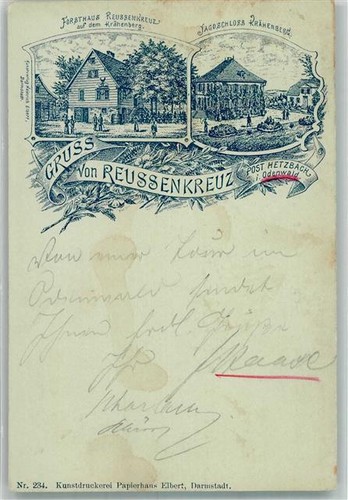 FORSTHAUS REUSSENKREUZ
auf dem Krähenberg.
JAGDSCHLOSS KRÄHENBERG.
GRUSS
von REUSSENKREUZ
POST HETZBACH
i. Odenwald.
Von einer Tour im
Odenwald sendet
Ihnen frdl. Grüße
Ihr
Nr. 234. Kunstdruckerei Papierhaus Elbert, Darmstadt.